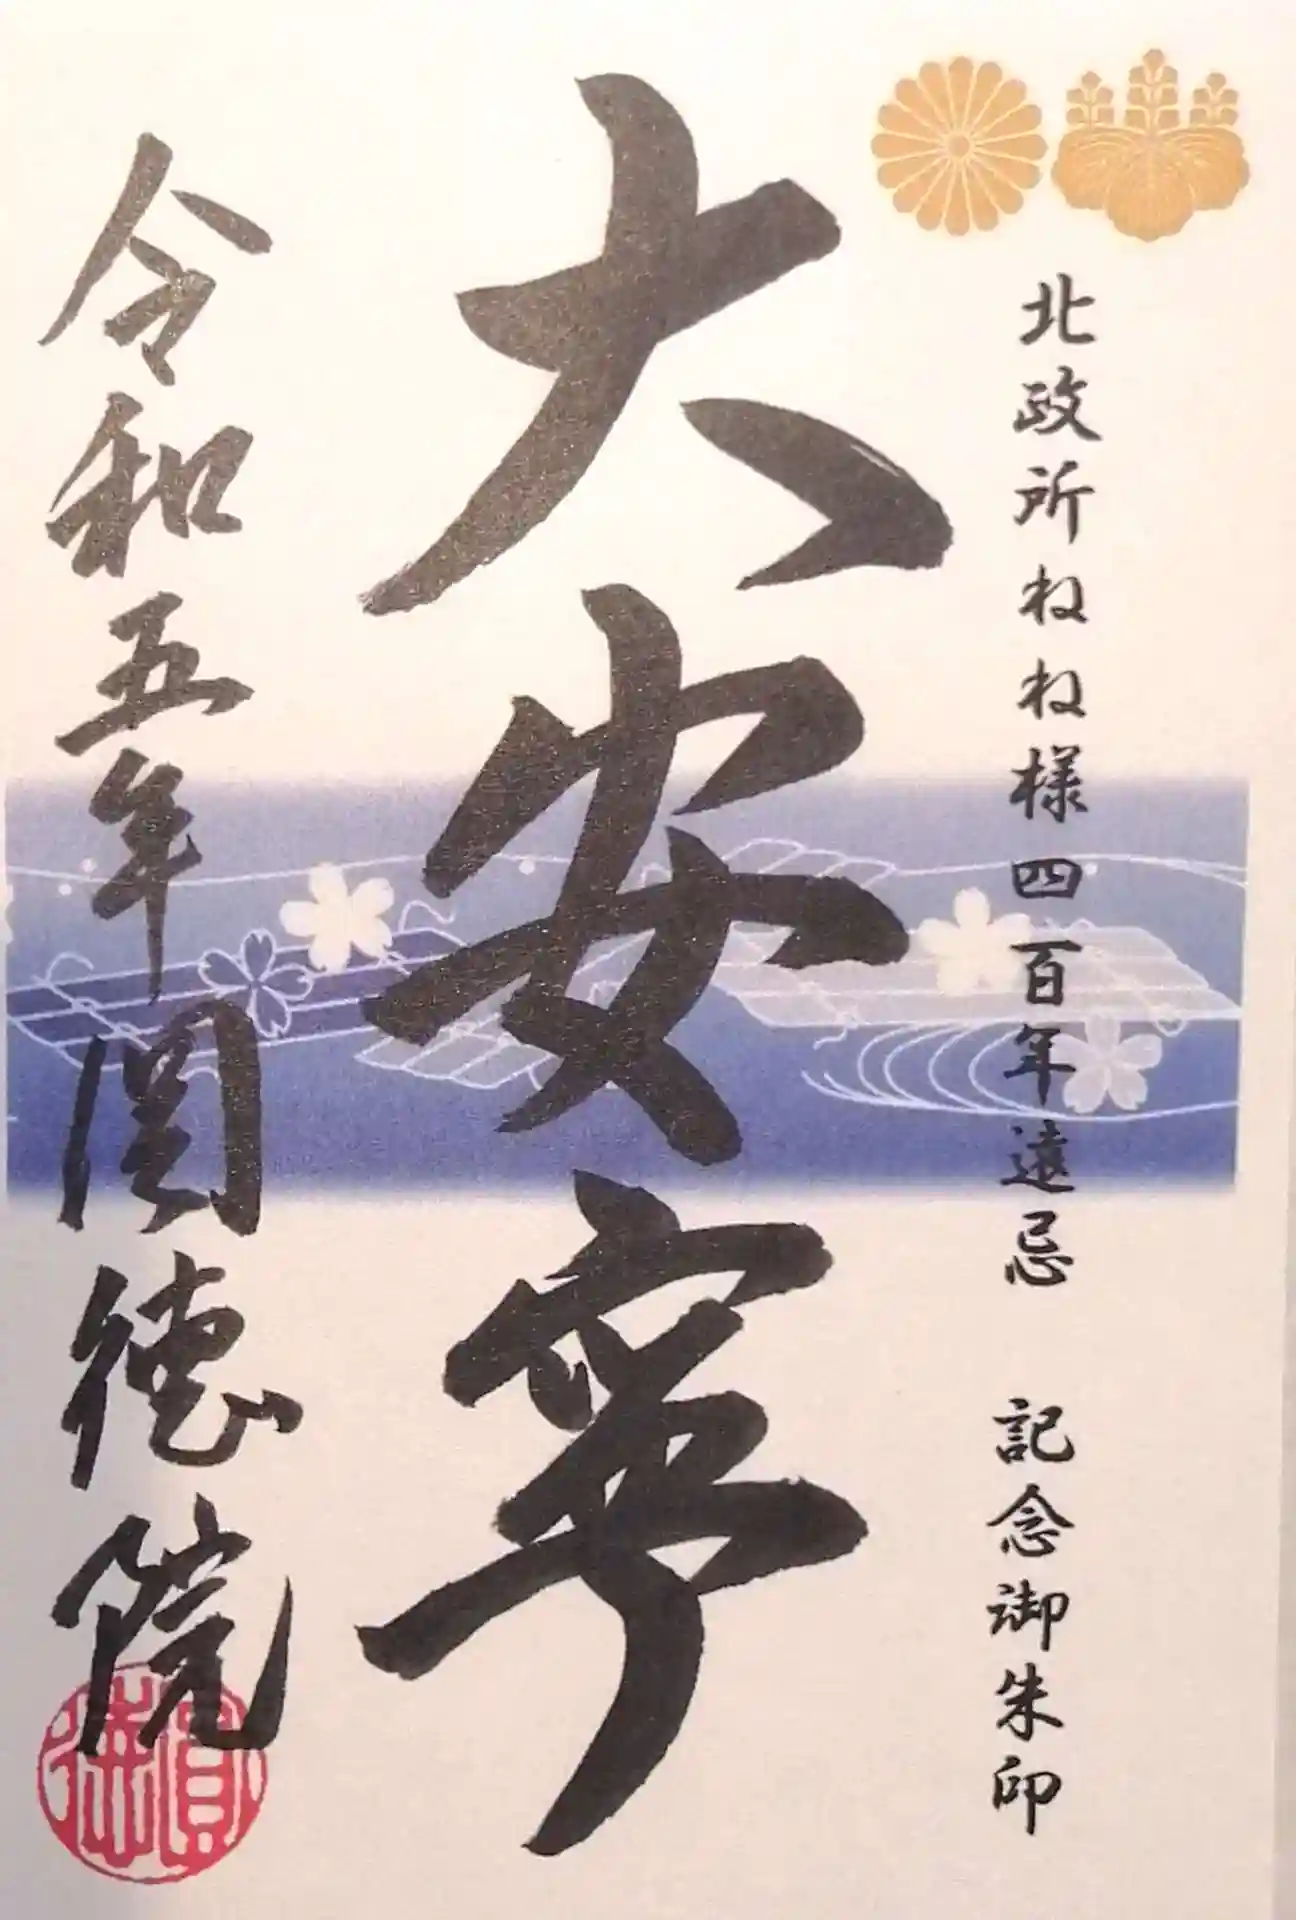 北政所ねね様四百年遠忌　記念御朱印
大安寧
令和五年圓徳院